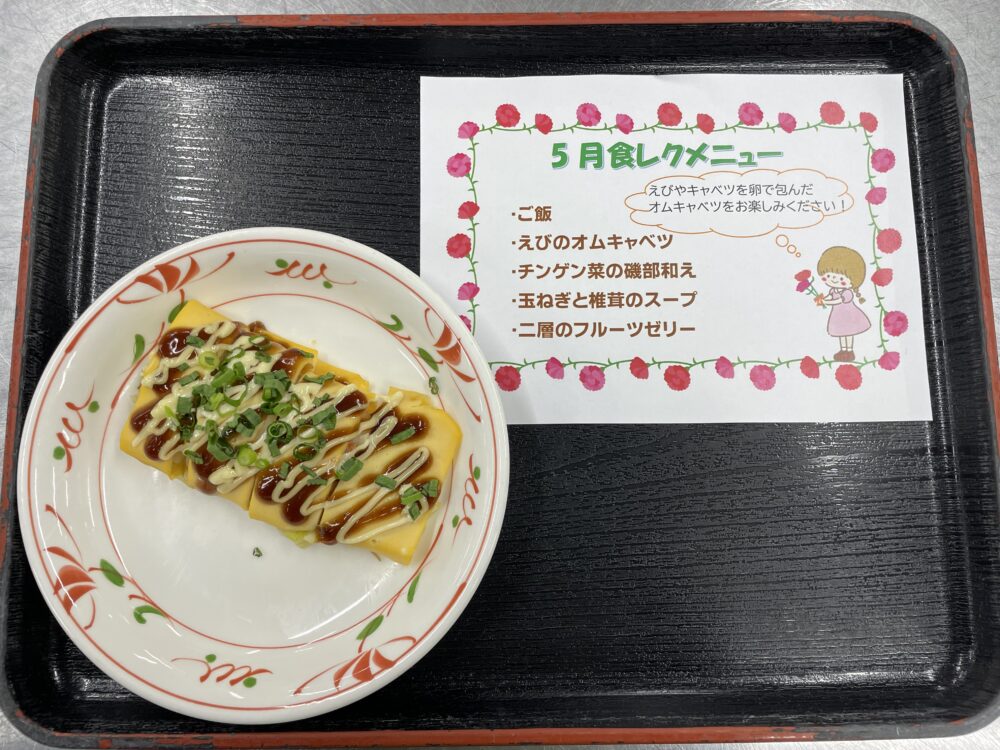 5月食レクメニュー
えびやキャベツを卵で包んだ
オムキャベツをお楽しみください！
・ご飯
・えびのオムキャベツ
・チンゲン菜の磯部和え
・玉ねぎと椎茸のスープ
・二層のフルーツゼリー